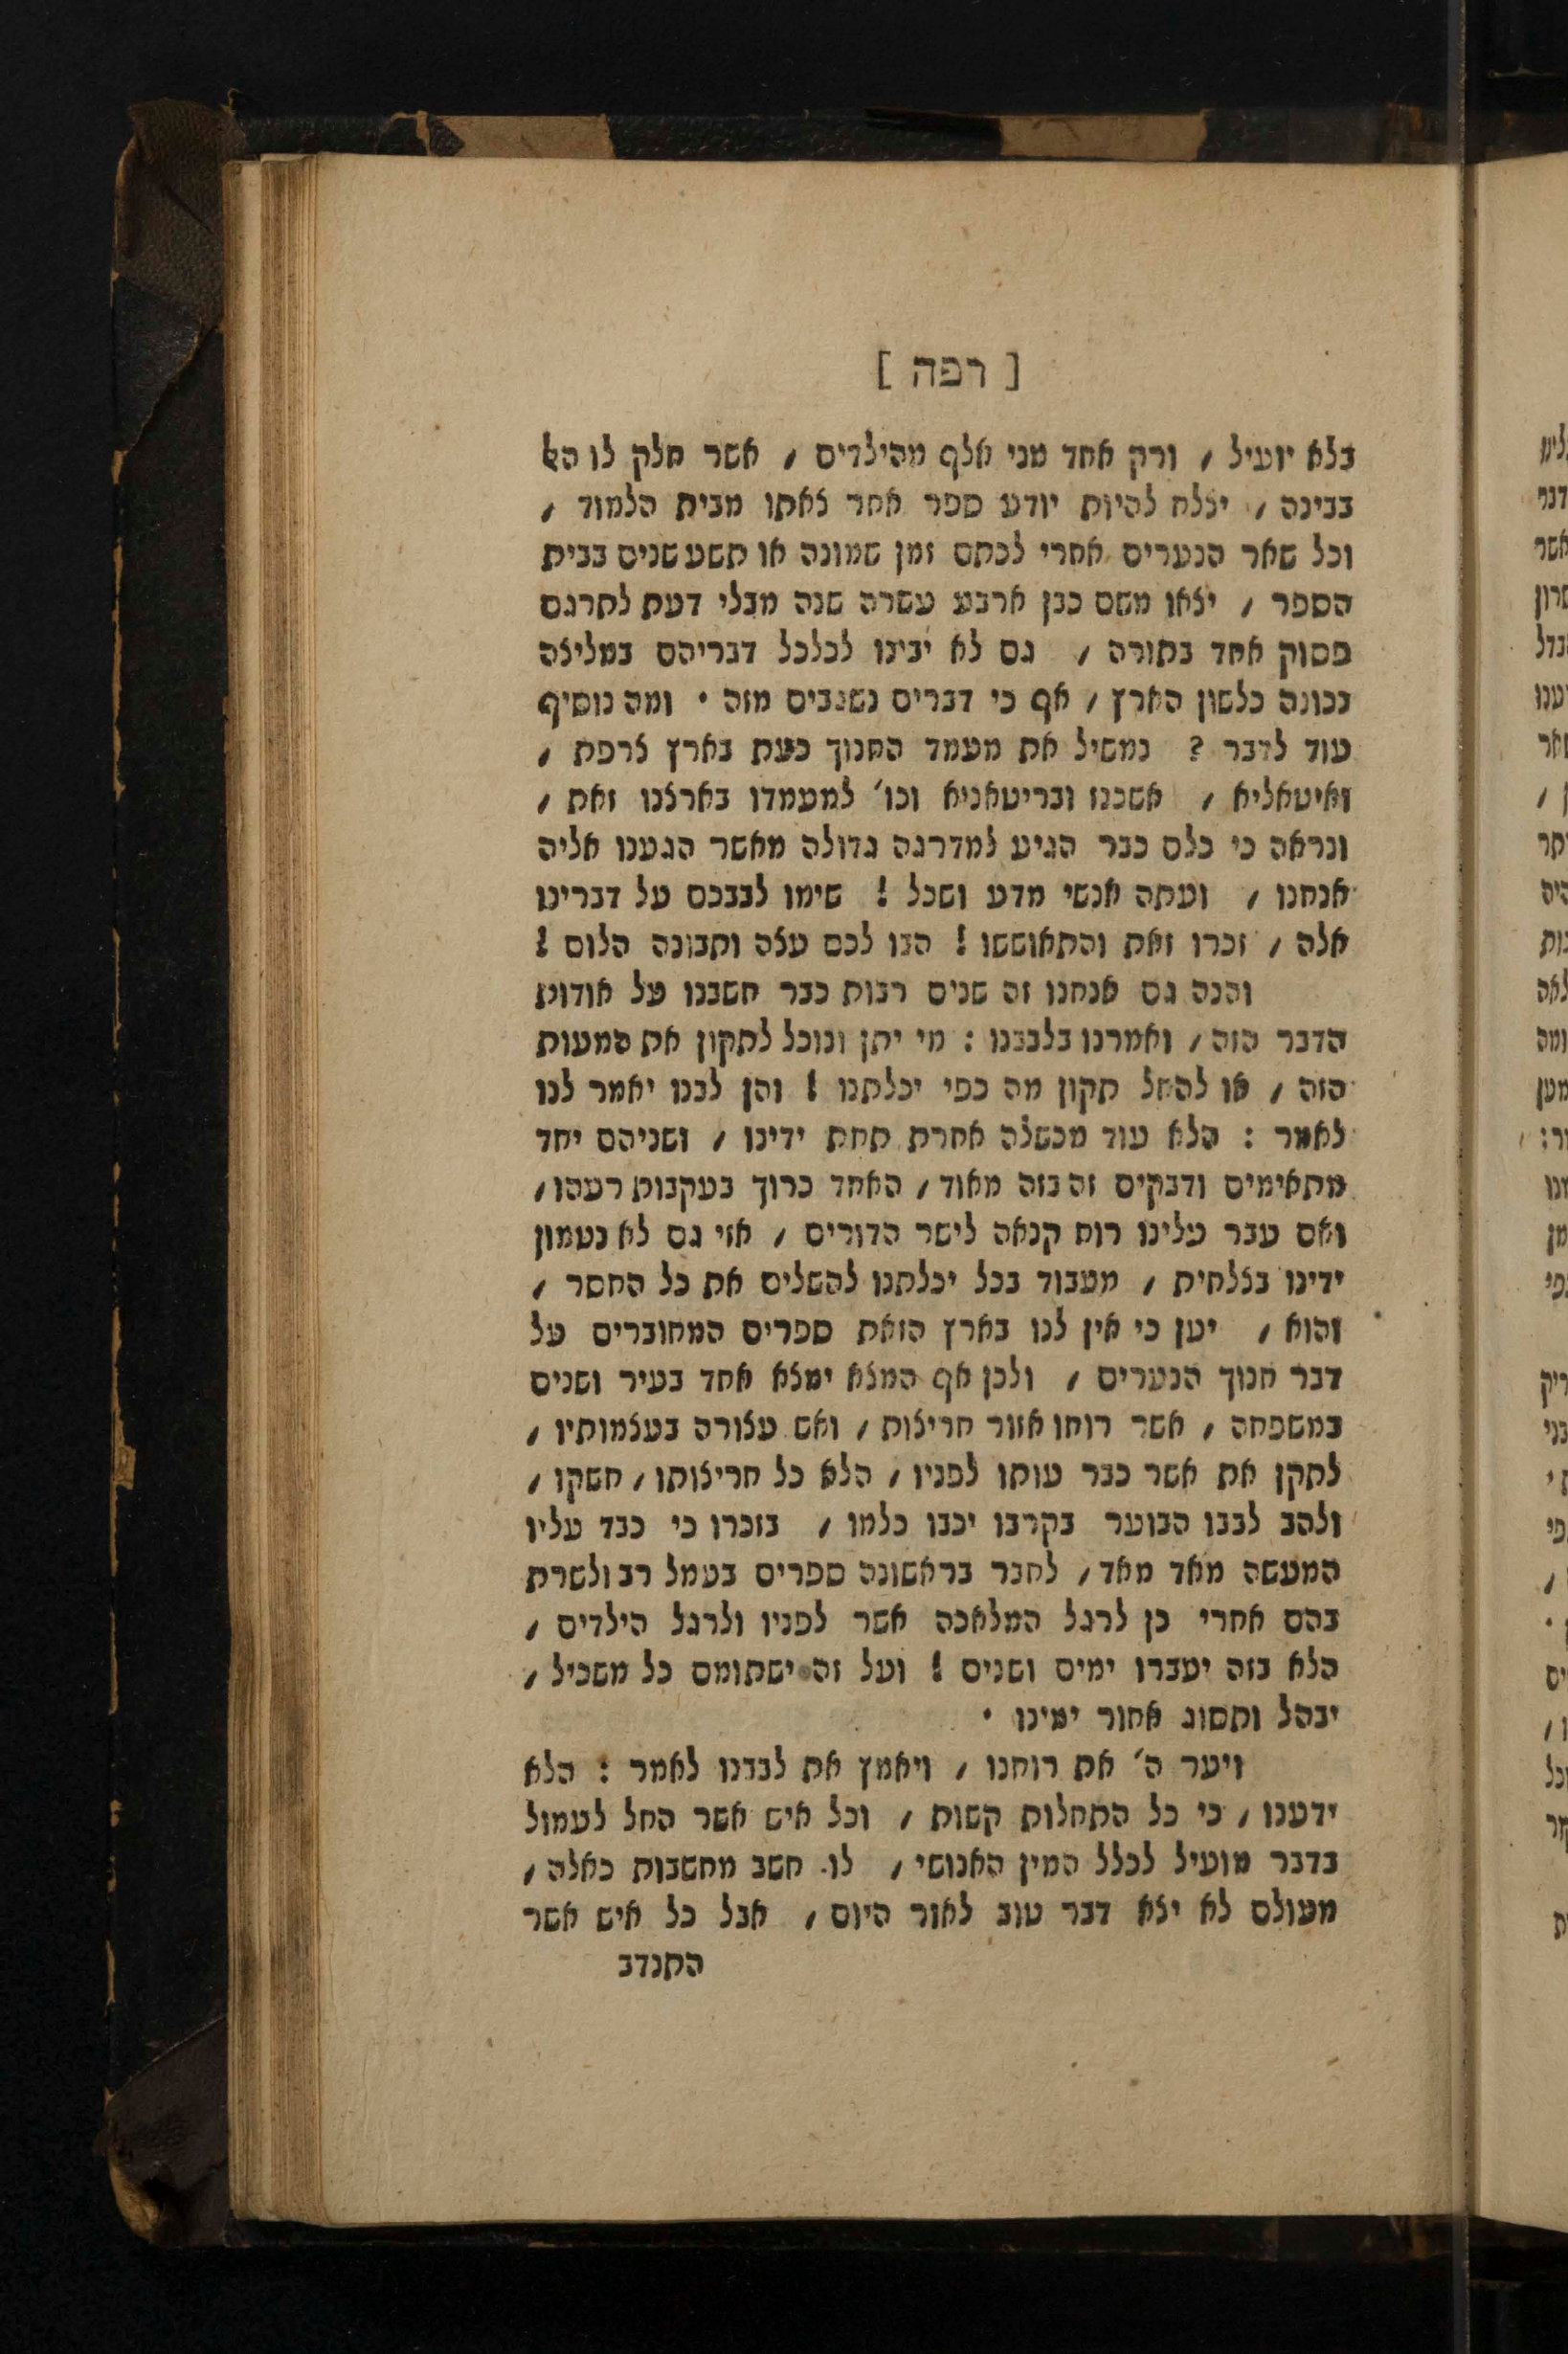 [ רפה ]
בלא יועיל , ורק אחד מני אלף מהילדים , אשר חלק לו האל
בבינה , יצלח להיות יודע ספר אחר צאתו מבית הלמוד ,
וכל שאר הנערים אחרי לכתם זמן שמונה או תשע שנים בבית
הספר , יצאו משם כבן ארבע עשרה שנה מבלי דעת לתרגם
פסוק אחד בתורה , גם לא יבינו לכלכל דבריהם במליצה
נכונה כלשון הארץ , אף כי דברים נשגבים מזה • ומה נוסיף
עוד לדבר ? נמשיל את מעמד החנוך כעת בארץ צרפת ,
ואיטאליא , אשכנז ובריטאניא וכו' למעמדו בארצנו זאת ,
ונראה כי כלם כבר הגיע למדרגה גדולה מאשר הגענו אליה
אנחנו , ועתה אנשי מדע ושכל ! שימו לבבכם על דברינו
אלה , זכרו זאת והתאוששו ! הבו לכם עצה ותבונה הלום !
והנה גם אנחנו זה שנים רבות כבר חשבנו על אודות
הדבר הזה , ואמרנו בלבבנו : מי יתן ונוכל לתקון את המעות
הזה , או להחל תקון מה כפי יכלתנו ! והן לבנו יאמר לנו
לאמר : הלא עוד מכשלה אחרת תחת ידינו , ושניהם יחד
מתאימים ודבקים זה בזה מאוד , האחד כרוך בעקבות רעהו ,
ואם עבר עלינו רוח קנאה לישר הדורים , אזי גם לא נטמון
ידינו בצלחית , מעבוד בכל יכלתנו להשלים את כל החסר ,
והוא , יען כי אין לנו בארץ הזאת ספרים המחוברים על
דבר חנוך הנערים , ולכן אף המצא ימצא אחד בעיר ושנים
במשפחה , אשר רוחו אזור חריצות , ואש עצורה בעצמותיו ,
לתקן את אשר כבר עותו לפניו , הלא כל חריצותו , חשקו ,
ולהב לבבו הבוער בקרבו יכבו כלמו , בזכרו כי כבד עליו
המעשה מאד מאד , לחבר בראשונה ספרים בעמל רב ולשרת
בהם אחרי כן לרגל המלאכה אשר לפניו ולרגל הילדים ,
הלא בזה יעברו ימים ושנים ! ועל זה ישתומם כל משכיל ,
יבהל ותסוג אחור ימינו •
ויער ה' את רוחנו , ויאמץ את לבדנו לאמר : הלא
ידענו , כי כל התחלות קשות , וכל איש אשר החל לעמול
בדבר מועיל לכלל המין האנושי , לו חשב מחשבות כאלה ,
מעולם לא יצא דבר טוב לאור היום , אבל כל איש אשר
התנדב